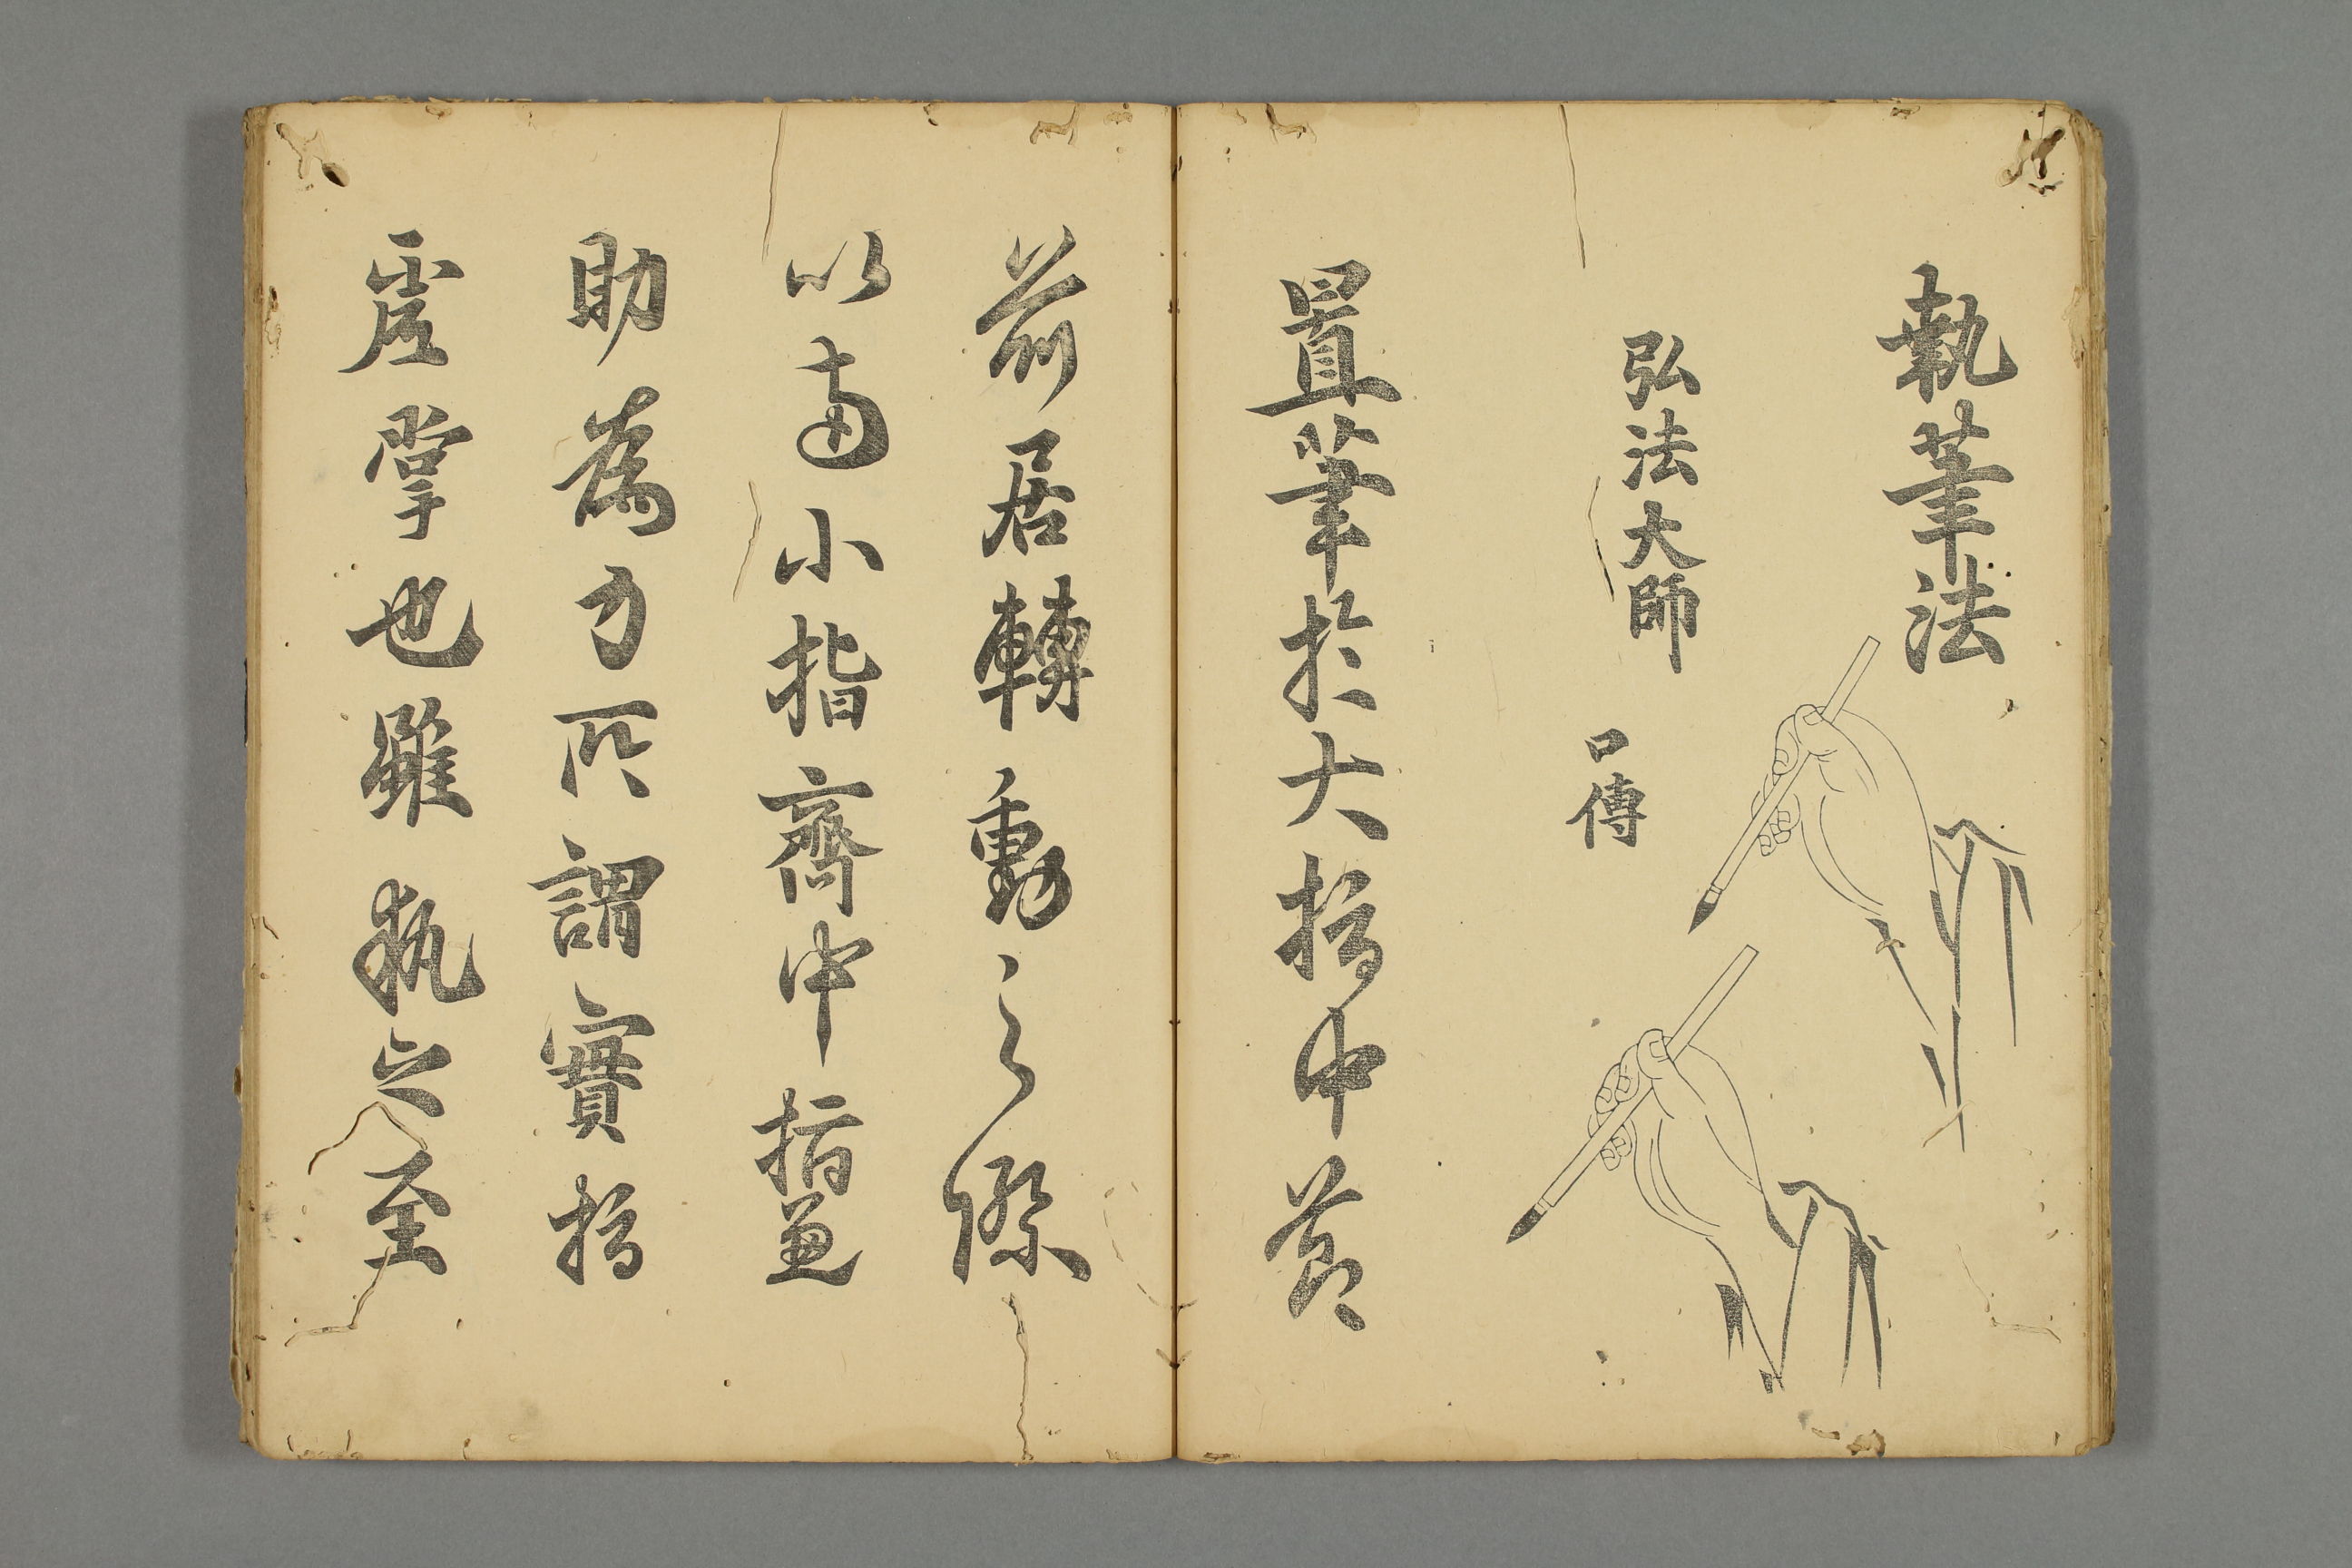 執筆法
弘法大師
口傳
置筆於大指中節
前居轉動之際
以両小指齊中指兼
助為力所謂實指
虚掌也雖執之至